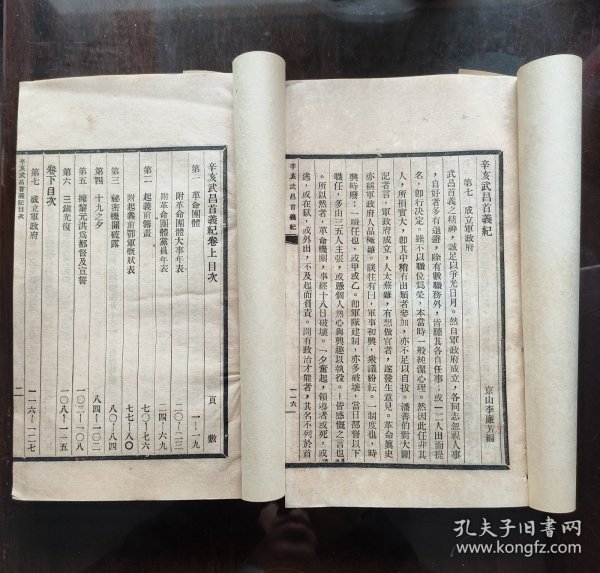 辛亥武昌首義紀
京山李廉芳編
第七　成立軍政府
武昌首義之精神，誠足以爭光日月。然自軍政府成立，各同志忽視人事
，自好者多有退避，除有數職務外，皆聽其各自任事；或一二人出面提
名，即行決定。雖不以職位爲榮，本當時一般純潔心理。然因此任非其
人，所損實大，卽其中稍有出類者參加，亦不足以自拔。潘康伯對大剛
記者言，軍政府成立，人太蕪雜，有想做官者，遂發生意見。革命眞史
亦稱軍政府人品極雜。談往有曰，軍事初興，衆議紛紜。一制度也，時
興時廢；一職任也，或甲或乙。卽軍隊建制，亦多破壞，當日部督以下
職任，多由三五人主張，或憑個人熱心與興趣以執役。皆感慨之言也
。所以然者，革命機關，事經十八日破壞。一夕奮起，領導者或死，或
逃，或在獄，或外出，不及起而負責。間有政治才能者，其名不列於首
辛亥武昌首義紀
一一六
辛亥武昌首義紀卷上目次
頁數
第一　革命團體　一-一九
附革命團體大事年表　二〇-二三
附革命團體黨員年表　二四-六九
第二　起義前籌畫　七〇-七六
附起義前鄂軍概狀表　七七-八〇
第三　祕密機關破露　八〇-八四
第四　十九之夕　八四-一〇三
第五　擁黎元洪爲都督及宣誓　一〇三-一〇八
第六　三鎮光復　一〇八-一一五
卷下目次
第七　成立軍政府　一一六-一二七
辛亥武昌首義紀目次
一
孔夫子旧书网
book.kongfz.com